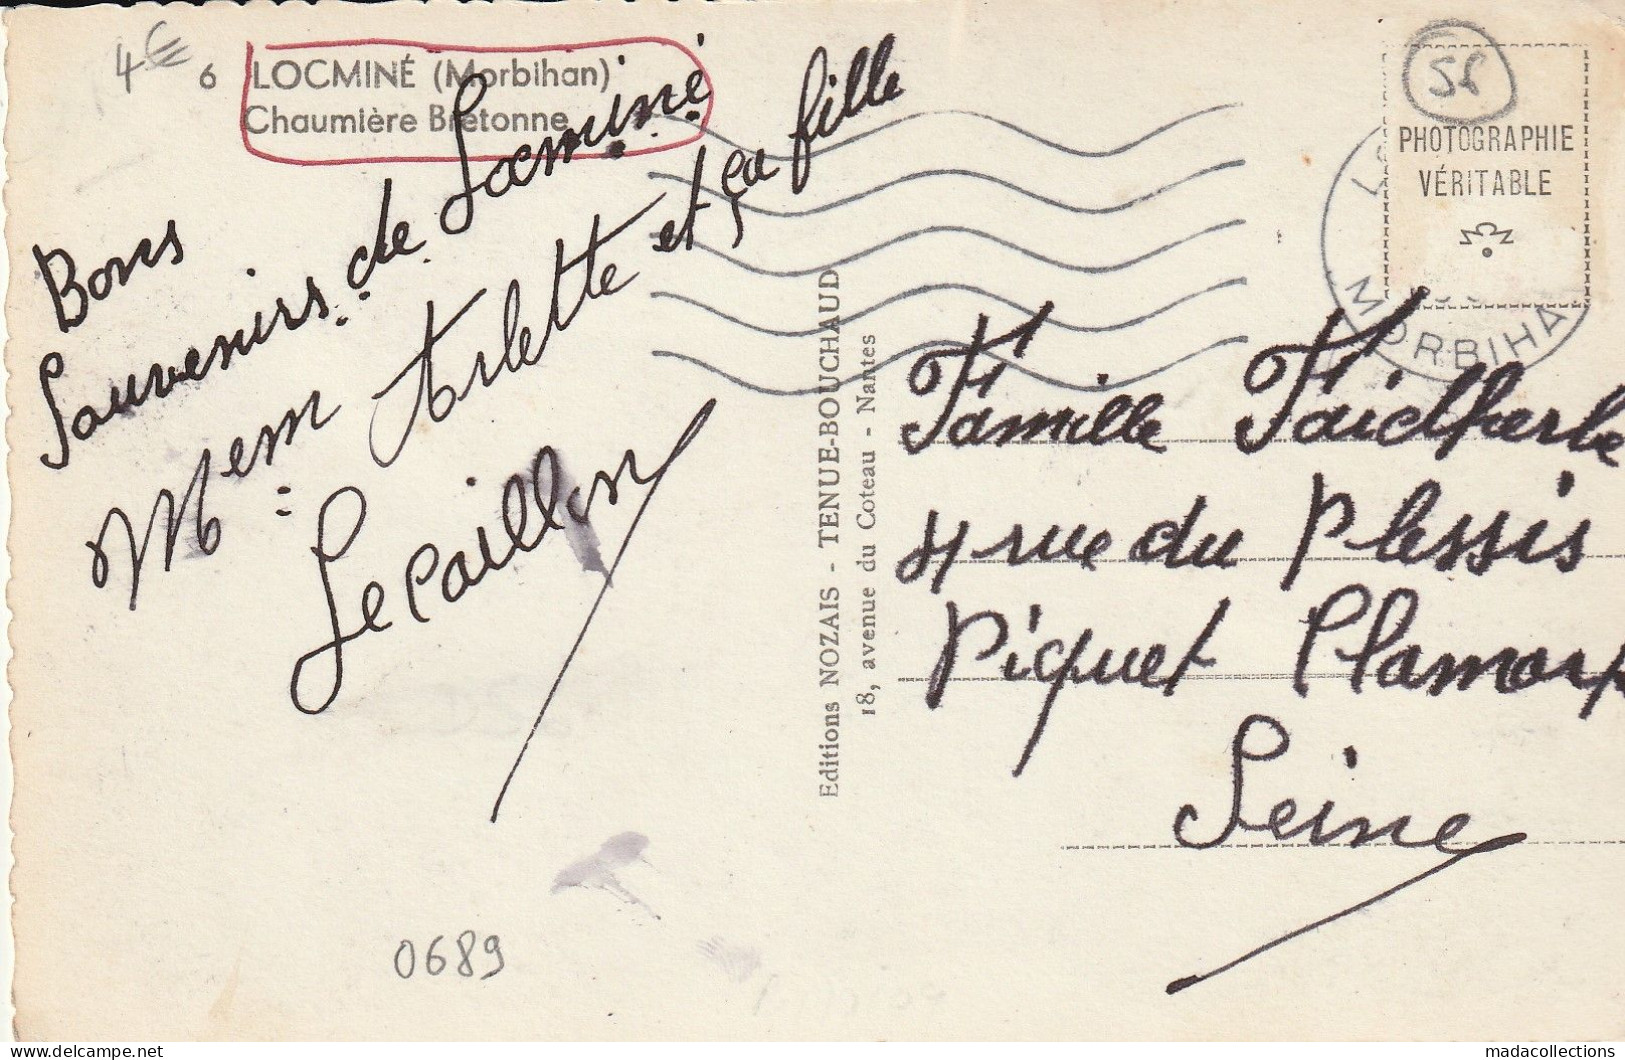 4€
6 LOCMINÉ (Morbihan)
Chaumière Bretonne
Bons
Souvenirs de Locminé
Mem Arlette et sa fille
Lecaillon
0689
Editions NOZAIS - TENUE-BOUCHAUD
18, avenue du Coteau - Nantes
56
PHOTOGRAPHIE
VÉRITABLE
MORBIHA
Famille Faidherbe
4 rue du Plessis
Piquet Clamart
Seine
delcampe.net
madacollections